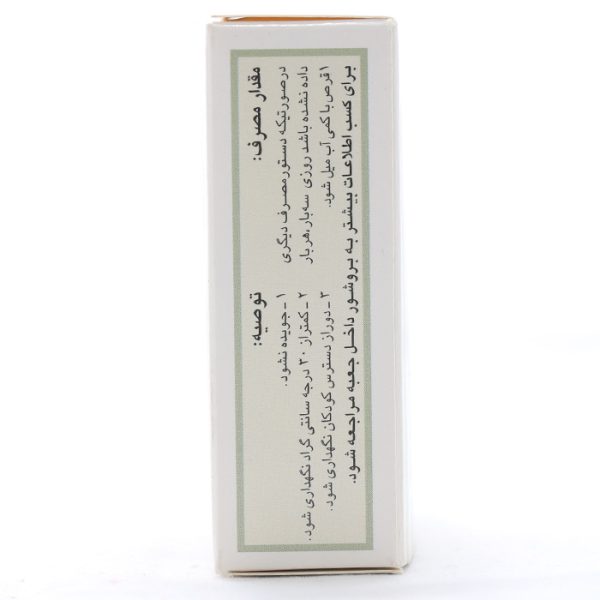 مقدار مصرف:
درصورتیکه دستور مصرف دیگری
داده نشده باشد روزی سه‌بار، هربار
۱ قرص با کمی آب میل شود.
توصیه:
۱ ـ جویده نشود.
۲ ـ کمتر از ۳۰ درجه سانتی گراد نگهداری شود.
۳ ـ دور از دسترس کودکان نگهداری شود.
برای کسب اطلاعات بیشتر به بروشور داخل جعبه مراجعه شود.